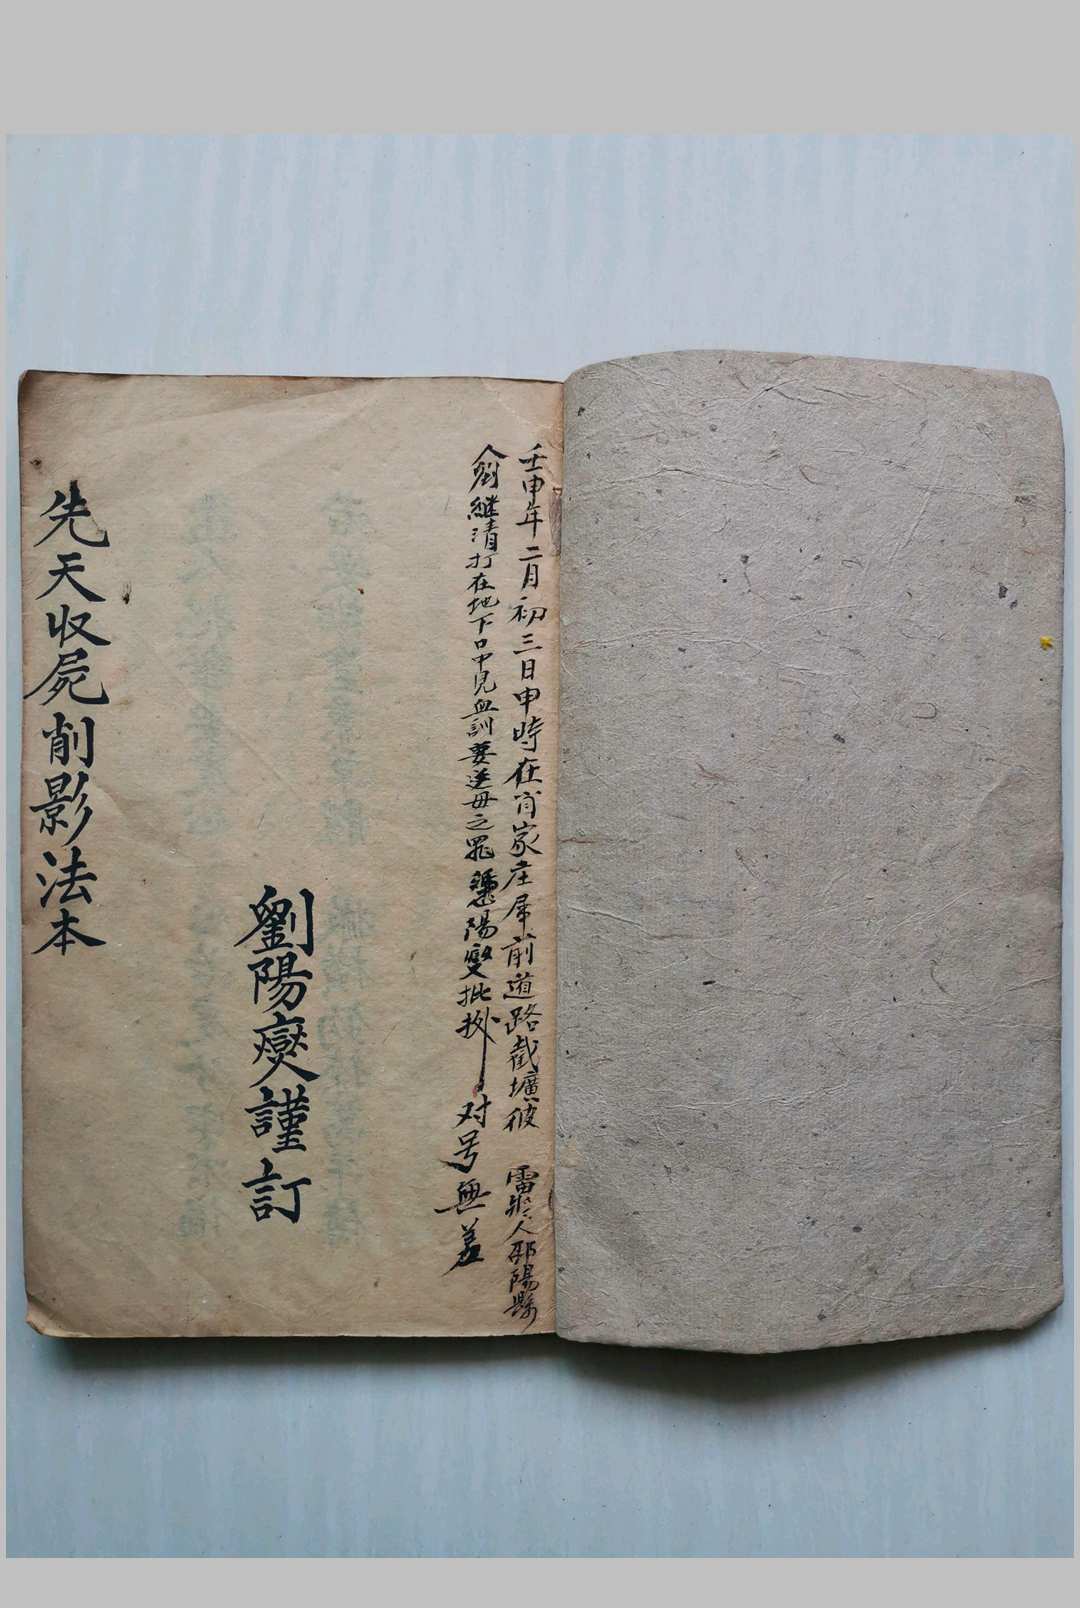 壬申年二月初三日申時在肖家庄屋前道路截壙彼 雷 人邵陽縣
人劉継清打在地下口中見血訓要送母之罪 陽變批挀 对号無差
劉陽爕謹訂
先天収屍削影法本